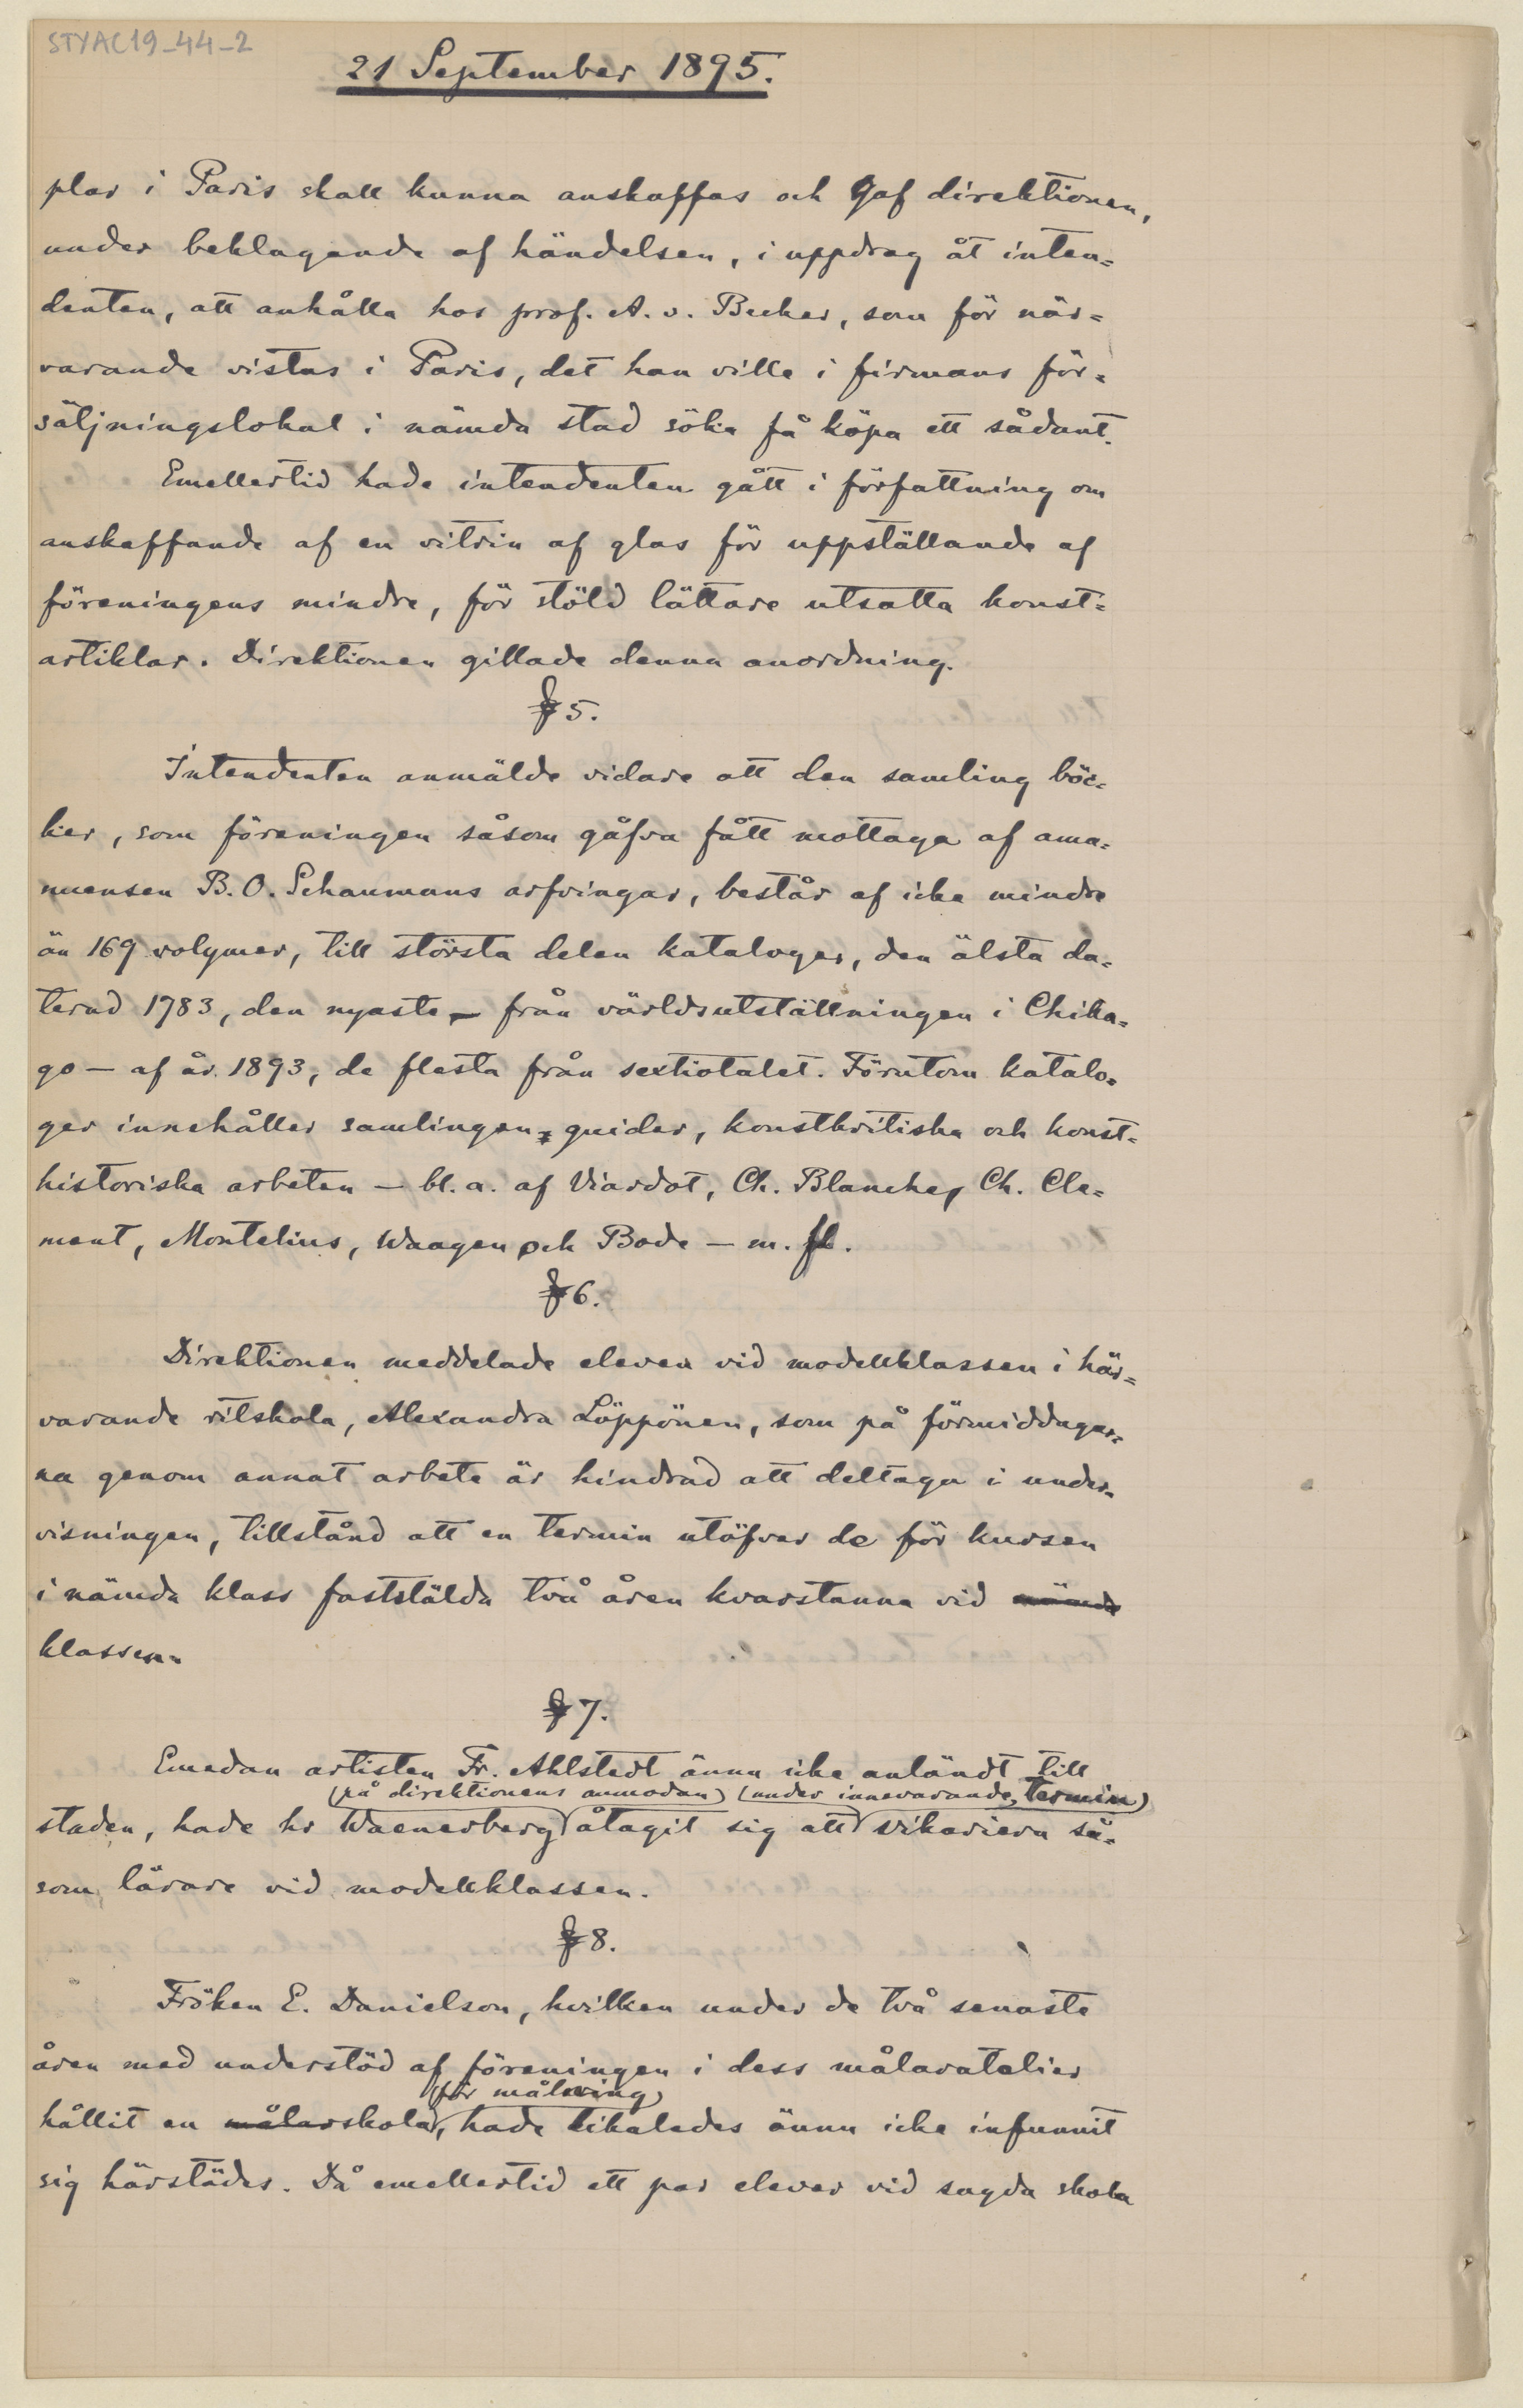 STYAC19_44_2
21 September 1895.
plar i Paris skall kunna anskaffas och gaf direktionen,
under beklagande af händelsen, i uppdrag åt inten=
denten, att anhålla hos prof. A. v. Becker, som för när=
varande vistas i Paris, det han ville i firmans för=
säljningslokal i nämda stad söka få köpa ett sådant.
Emellertid hade intendenten gått i författning om
anskaffande af en vitrin af glas för uppställande af
föreningens mindre, för stöld lättare utsatta konst=
artiklar. Direktionen gillade denna anordning.
§ 5.
Intendenten anmälde vidare att den samling böc=
ker, som föreningen såsom gåfva fått mottaga af ama=
nuensen B. O. Schaumans arfvingar, består af icke mindre
än 169 volymer, till största delen kataloger, den älsta da=
terad 1783, den nyaste — från världsutställningen i Chika=
go — af år 1893, de flesta från sextiotalet. Förutom katalo=
ger innehåller samlingen guider, konstkritiska och konst=
historiska arbeten — bl. a. af Viardot, Ch. Blanche, Ch. Cle=
ment, Montelius, Waagen och Bode — m. fl.
§ 6.
Direktionen meddelade eleven vid modellklassen i här=
varande ritskola, Alexandra Löppönen, som på förmiddagar=
na genom annat arbete är hindrad att deltaga i under=
visningen, tillstånd att en termin utöfver de för kursen
i nämda klass faststälda två åren kvarstanna vid nämda
klassen.
§ 7.
Emedan artisten Fr. Ahlstedt ännu icke anländt till
(på direktionens anmodan) (under innevarande termin)
staden, hade hr Waenerberg åtagit sig att vikariera så=
som lärare vid modellklassen.
§ 8.
Fröken E. Danielson, hvilken under de två senaste
åren med understöd af föreningen i dess målaratelier
(för målning)
hållit en målarskola, hade likaledes ännu icke infunnit
sig härstädes. Då emellertid ett par elever vid sagda skola